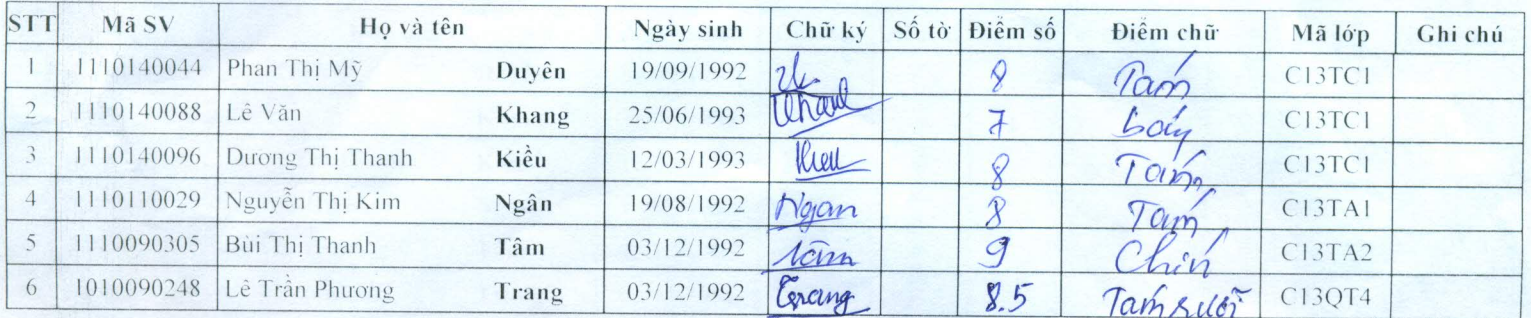 STT Mã SV Họ và tên Ngày sinh Chữ ký Số tờ Điểm số Điểm chữ Mã lớp Ghi chú
1 1110140044 Phan Thị Mỹ Duyên 19/09/1992 8 Tám C13TC1
2 1110140088 Lê Văn Khang 25/06/1993 Khang 7 bảy C13TC1
3 1110140096 Dương Thị Thanh Kiều 12/03/1993 Kieu 8 Tám C13TC1
4 1110110029 Nguyễn Thị Kim Ngân 19/08/1992 Ngan 8 Tám C13TA1
5 1110090305 Bùi Thị Thanh Tâm 03/12/1992 Tâm 9 Chín C13TA2
6 1010090248 Lê Trần Phương Trang 03/12/1992 Trang 8.5 Tám rưỡi C13QT4